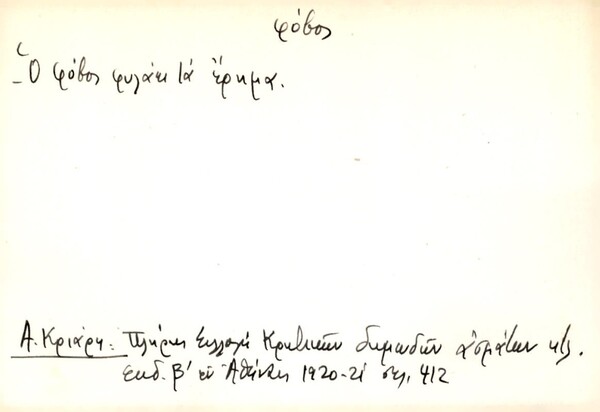 φόβος
– Ὁ φόβος φυλάει τά ἔρημα.
Α. Κριάρη: Πλήρης Συλλογή Κρητικῶν δημωδῶν ᾀσμάτων κτλ.
Ἐκδ. β' ἐν Ἀθήναις 1920-21 σελ. 412